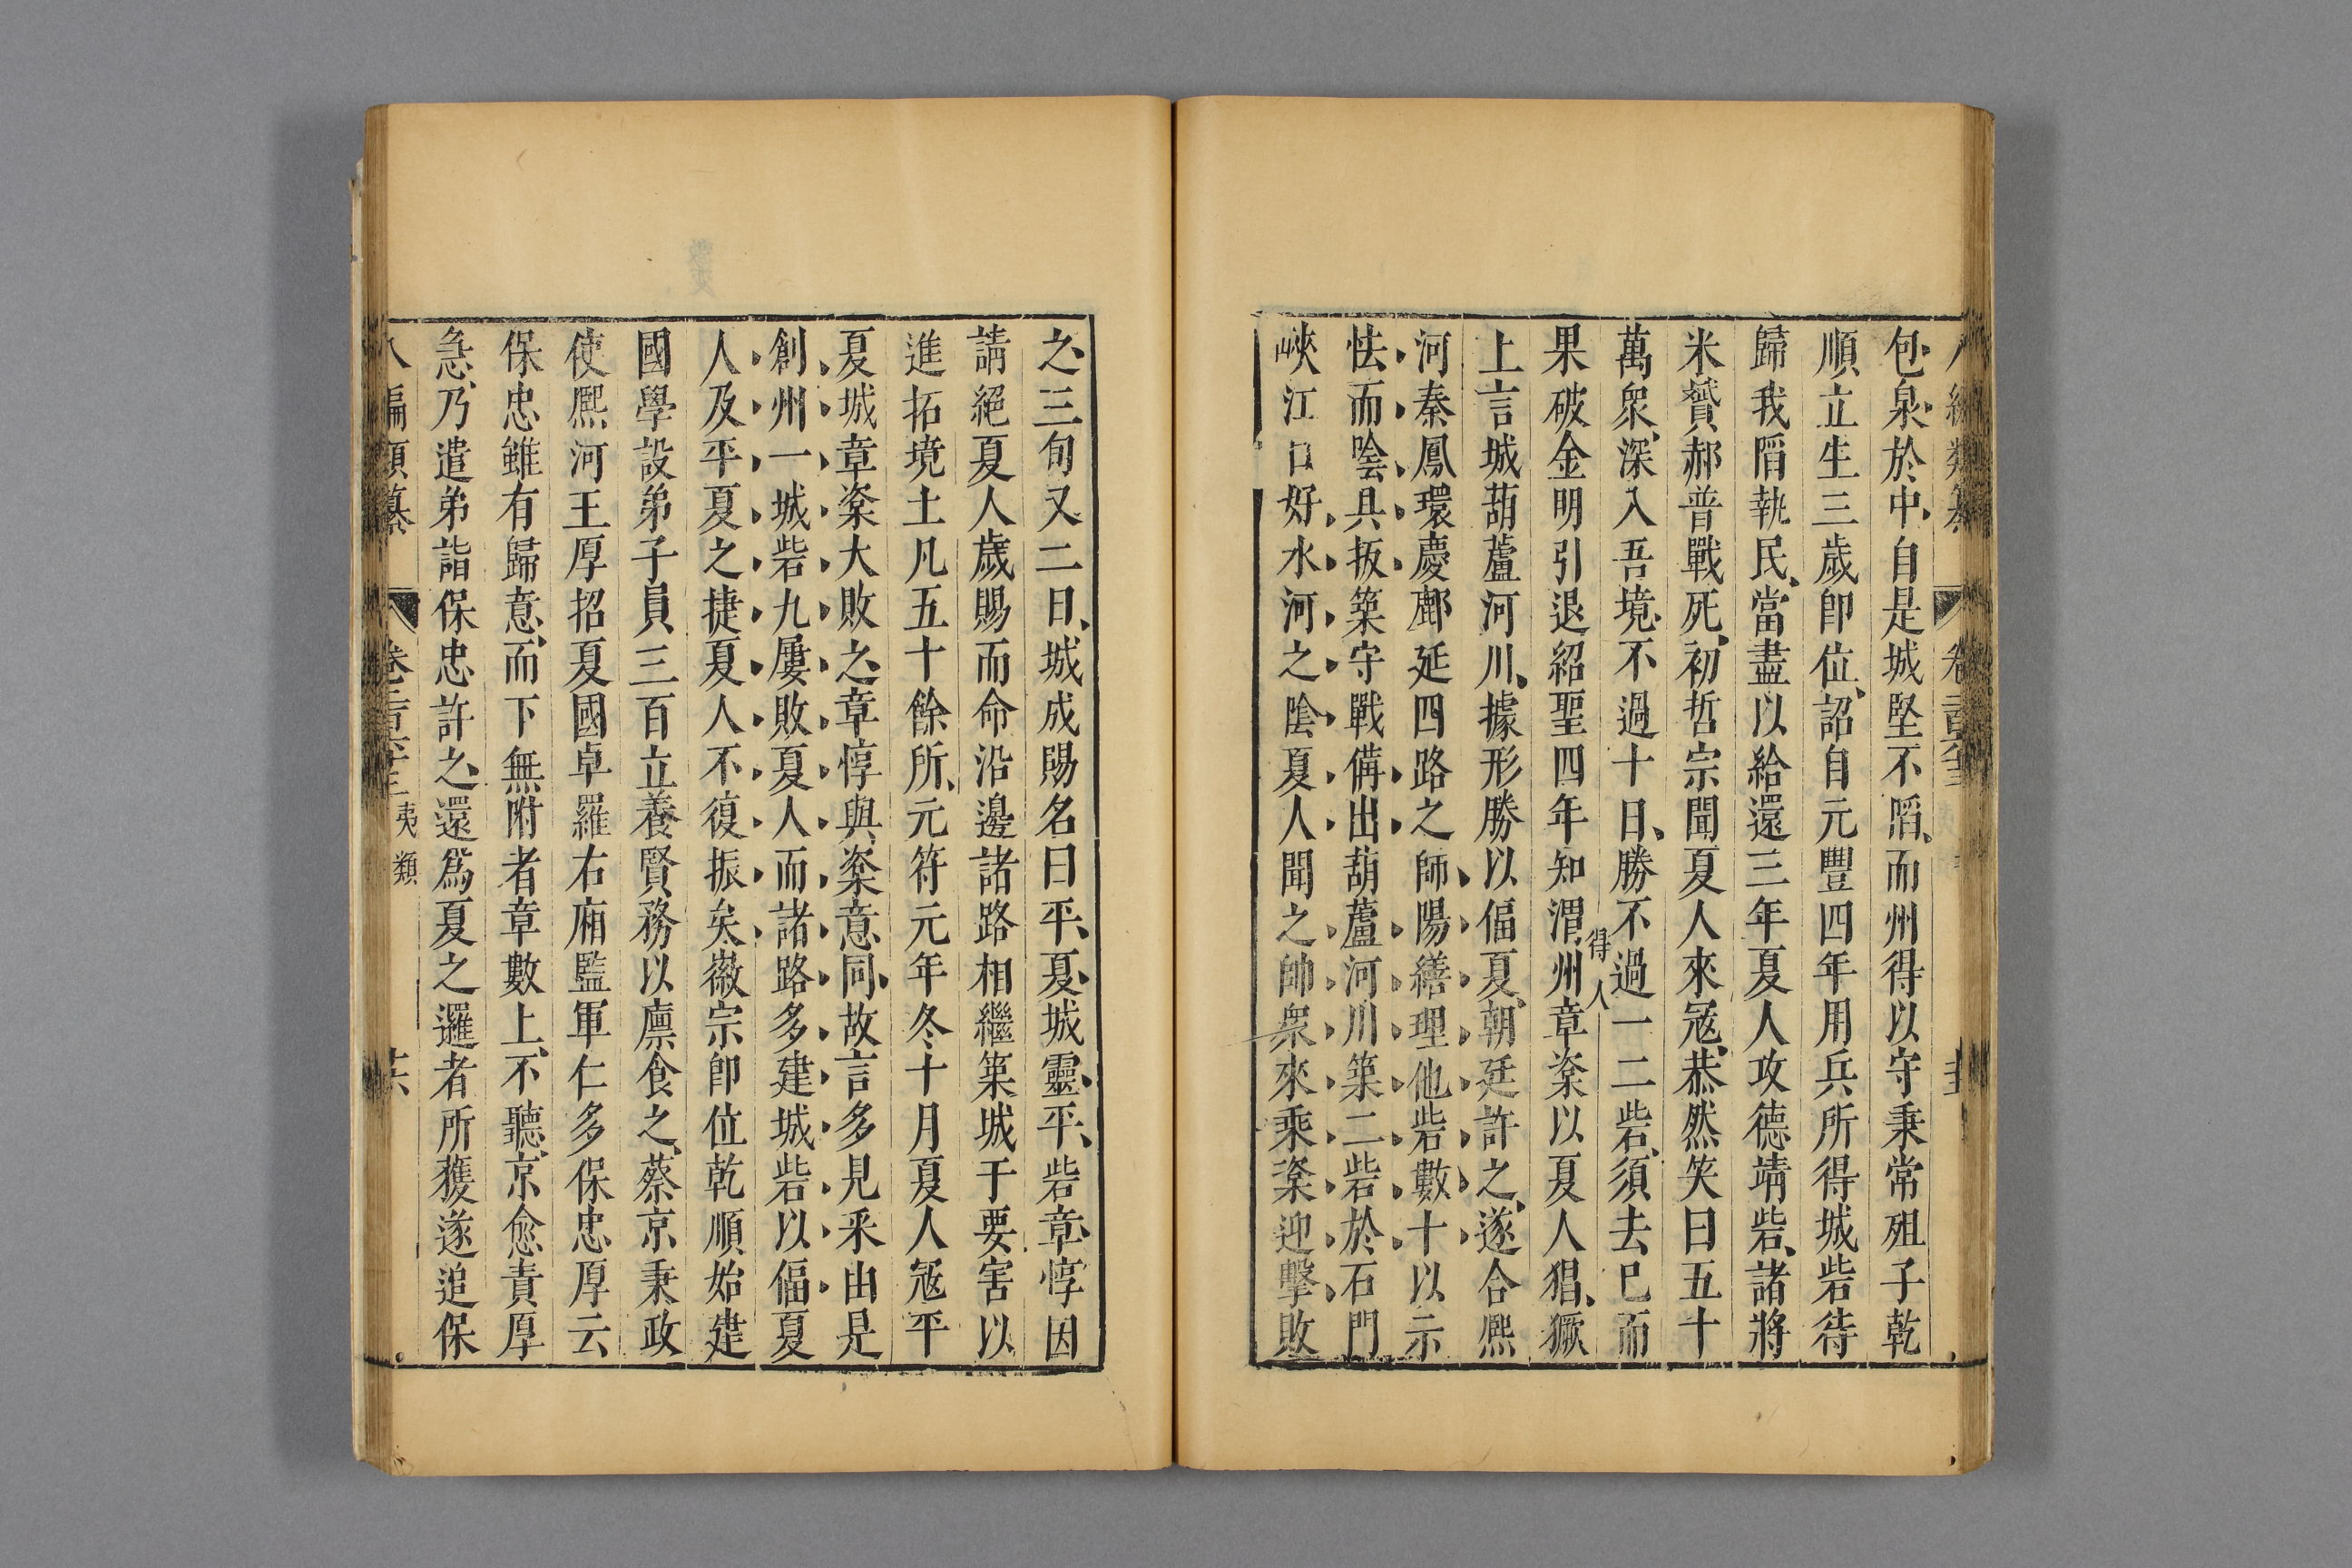 包泉於中自是城堅不陷而州得以守秉常殂子乾
順立生三歲卽位詔自元豐四年用兵所得城砦待
歸我陷執民當盡以給還三年夏人攻德靖砦諸將
米贇郝普戰死初哲宗聞夏人來冦恭然笑曰五十
萬衆深入吾境不過十日勝不過一二砦須去巳而
得人
果破金明引退紹聖四年知渭州章楶以夏人猖獗
上言城葫蘆河川據形勝以偪夏朝廷許之遂合熙
河秦鳳環慶鄜延四路之師陽繕理他砦數十以示
怯而陰具扳築守戰俻出葫蘆河川築二砦於石門
峽江口好水河之陰夏人聞之帥衆來乘楶迎擊敗
之三旬又二日城成賜名曰平夏城靈平砦章惇因
請絕夏人歲賜而命沿邊諸路相繼築城于要害以
進拓境土凡五十餘所元符元年冬十月夏人冦平
夏城章楶大敗之章惇與楶意同故言多見采由是
創州一城砦九屢敗夏人而諸路多建城砦以偪夏
人及平夏之捷夏人不復振矣徽宗卽位乾順始建
國學設弟子員三百立養賢務以廩食之蔡京秉政
使熙河王厚招夏國卓羅右廂監軍仁多保忠厚云
保忠雖有歸意而下無附者章數上不聽京愈責厚
急乃遣弟詣保忠許之還爲夏之邏者所獲遂追保
八編類纂 夷類